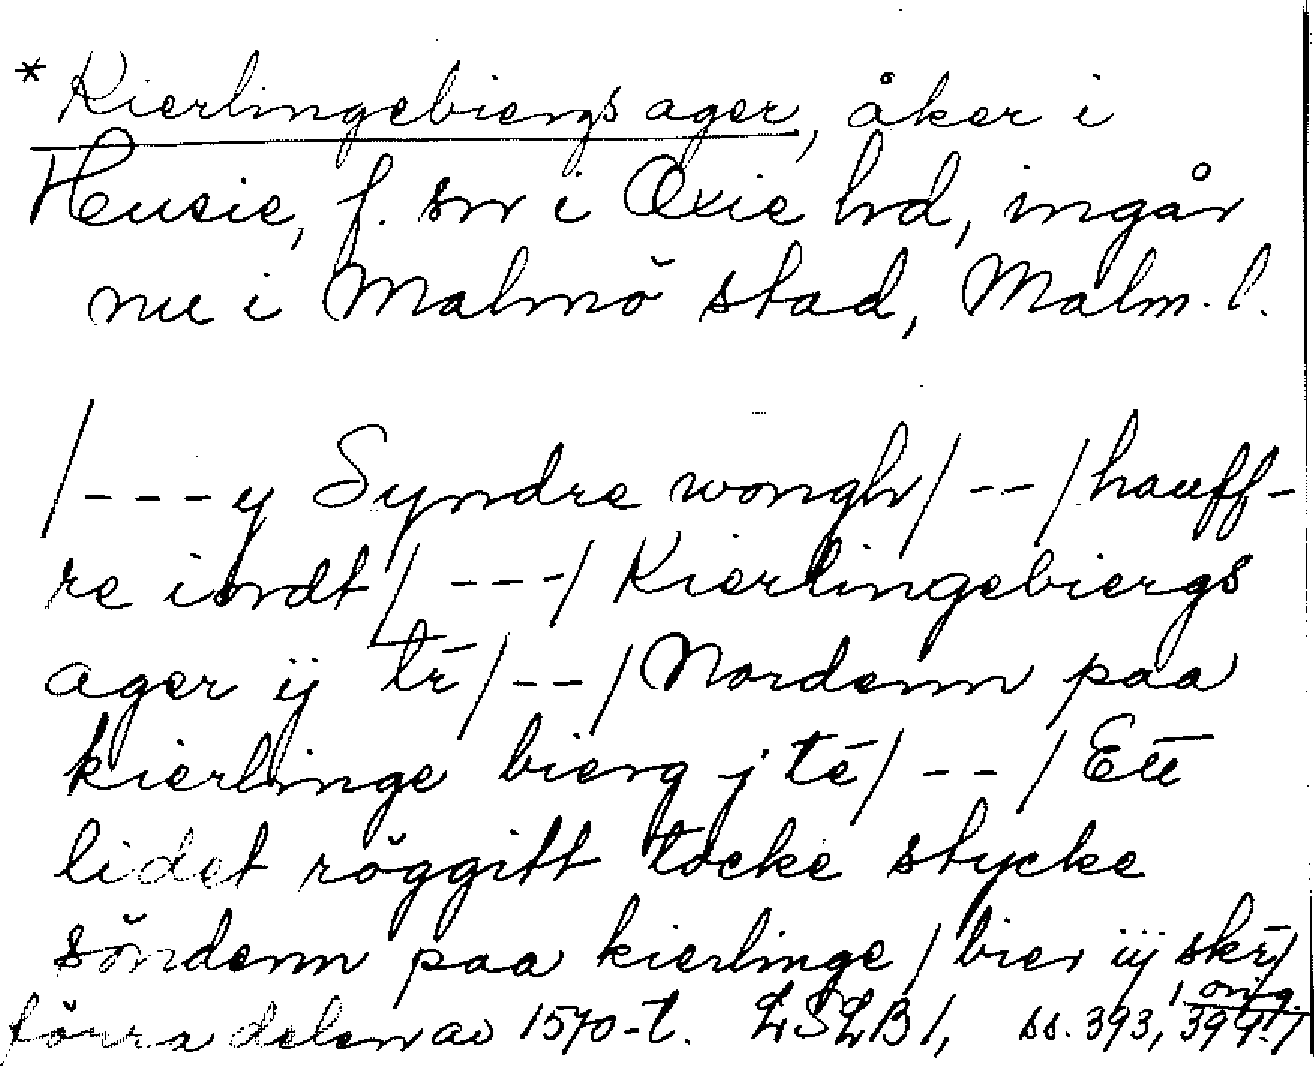 * Kierlingebiergs ager, åker i
Husie, f. sn i Oxie hd, ingår
nu i Malmö stad, Malm. l.
/---y Syndre wongh/--/hauff-
re iordt/---/Kierlingebiergs
ager ij tr̄/--/Nordenn paa
kierlinge bierg j tē/--/Ett
lidet röggitt tocke stycke
söndenn paa kierlinge/bier iij skr̄/
förra delen av 1570-t. LSLB 1, ss. 393, 394. orig.